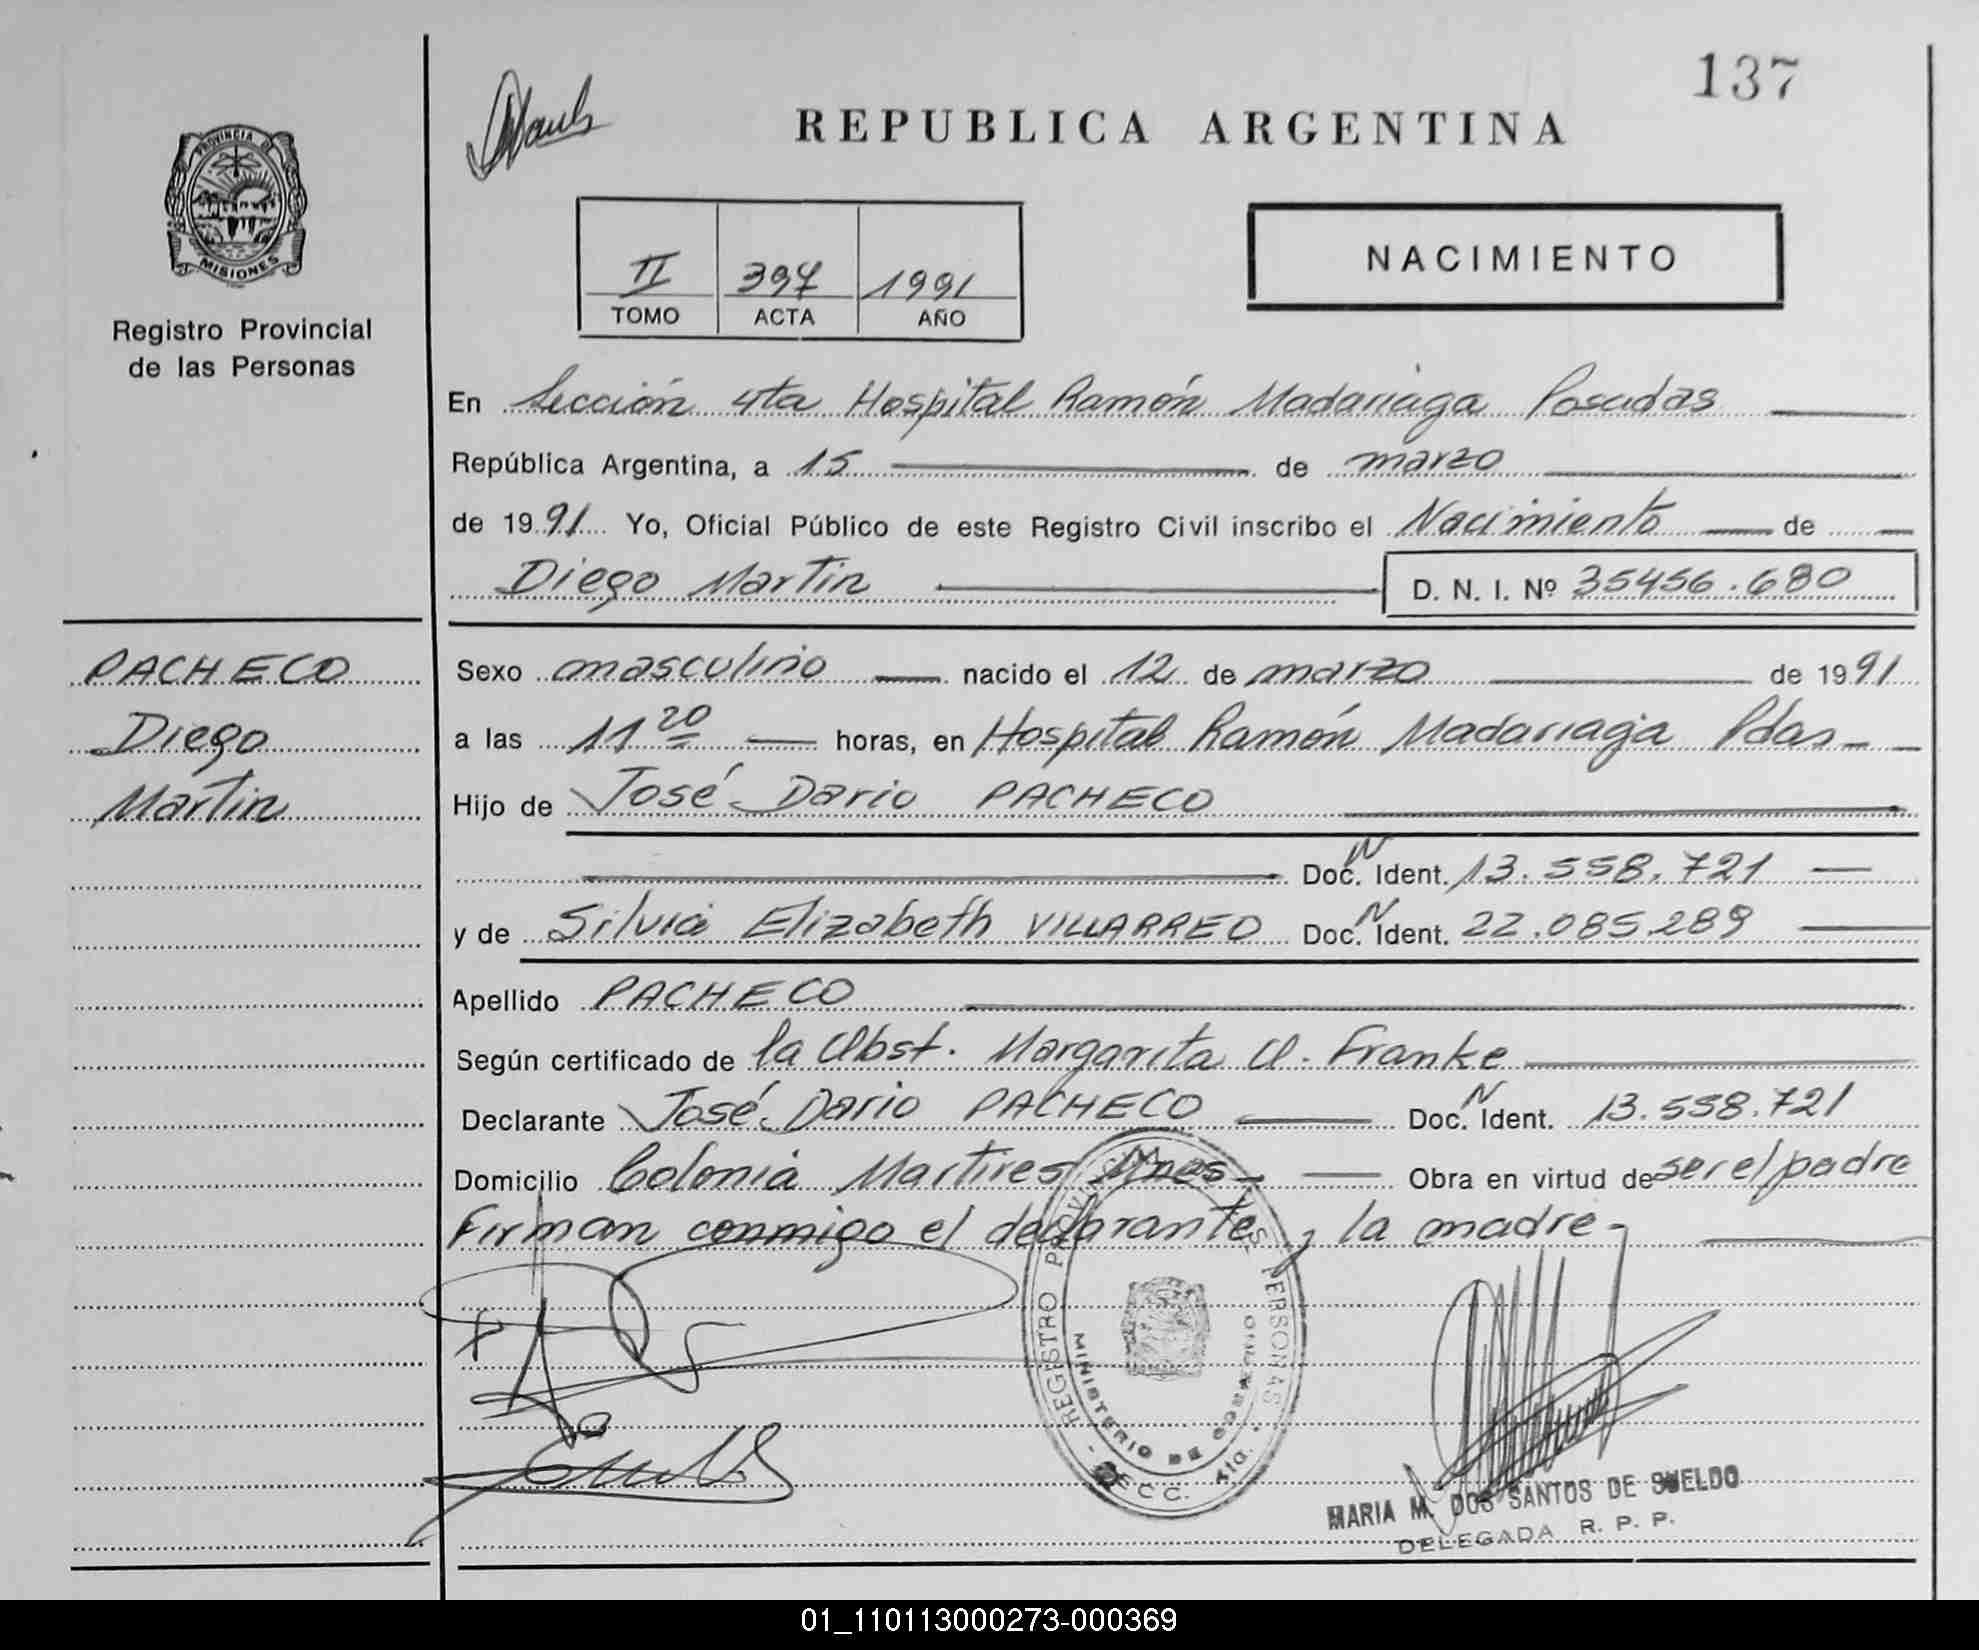 137
REPUBLICA ARGENTINA
PROVINCIA DE
MISIONES
Registro Provincial
de las Personas
II 397 1991
TOMO ACTA AÑO
NACIMIENTO
En Sección 4ta Hospital Ramón Madariaga Posadas
República Argentina, a 15 de marzo
de 1991 Yo, Oficial Público de este Registro Civil inscribo el Nacimiento de
Diego Martin D. N. I. Nº 35456.680
PACHECO
Diego
Martin
Sexo masculino nacido el 12 de marzo de 1991
a las 11 20 horas, en Hospital Ramón Madariaga Pdas
Hijo de José Dario PACHECO
Doc. N Ident. 13.558.721
y de Silvia Elizabeth VILLARREO Doc. N Ident. 22.085.289
Apellido PACHECO
Según certificado de la Obst. Margarita A. Franke
Declarante José Dario PACHECO Doc. N Ident. 13.558.721
Domicilio Colonia Martires Mnes Obra en virtud de ser el padre
Firman conmigo el declarante y la madre
REGISTRO PERSONAS
MINISTERIO DE GOBIERNO
SECC. 4ta.
MARIA M. DOS SANTOS DE SUELDO
DELEGADA R. P. P.
01_110113000273-000369